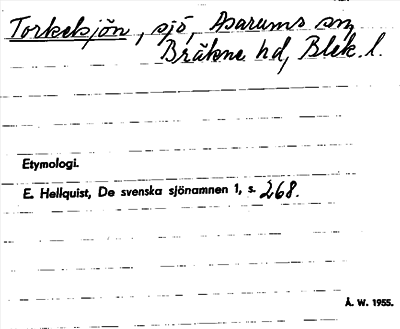 Torkelsjön, sjö, Asarums sn,
Bräkne hd, Blek. l.
Etymologi.
E. Hellquist, De svenska sjönamnen 1, s. 268.
Å. W. 1955.